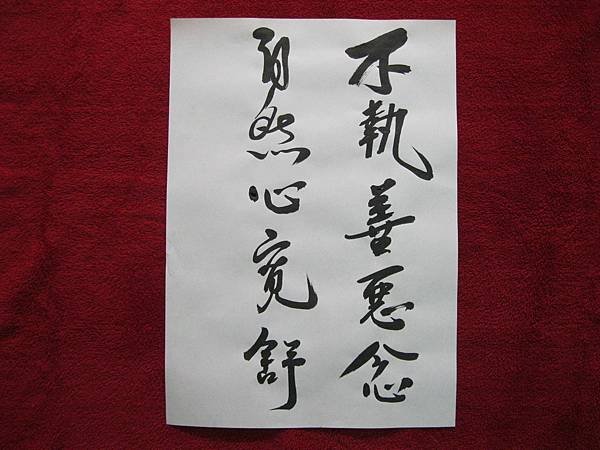 不執善惡念
自然心寬舒